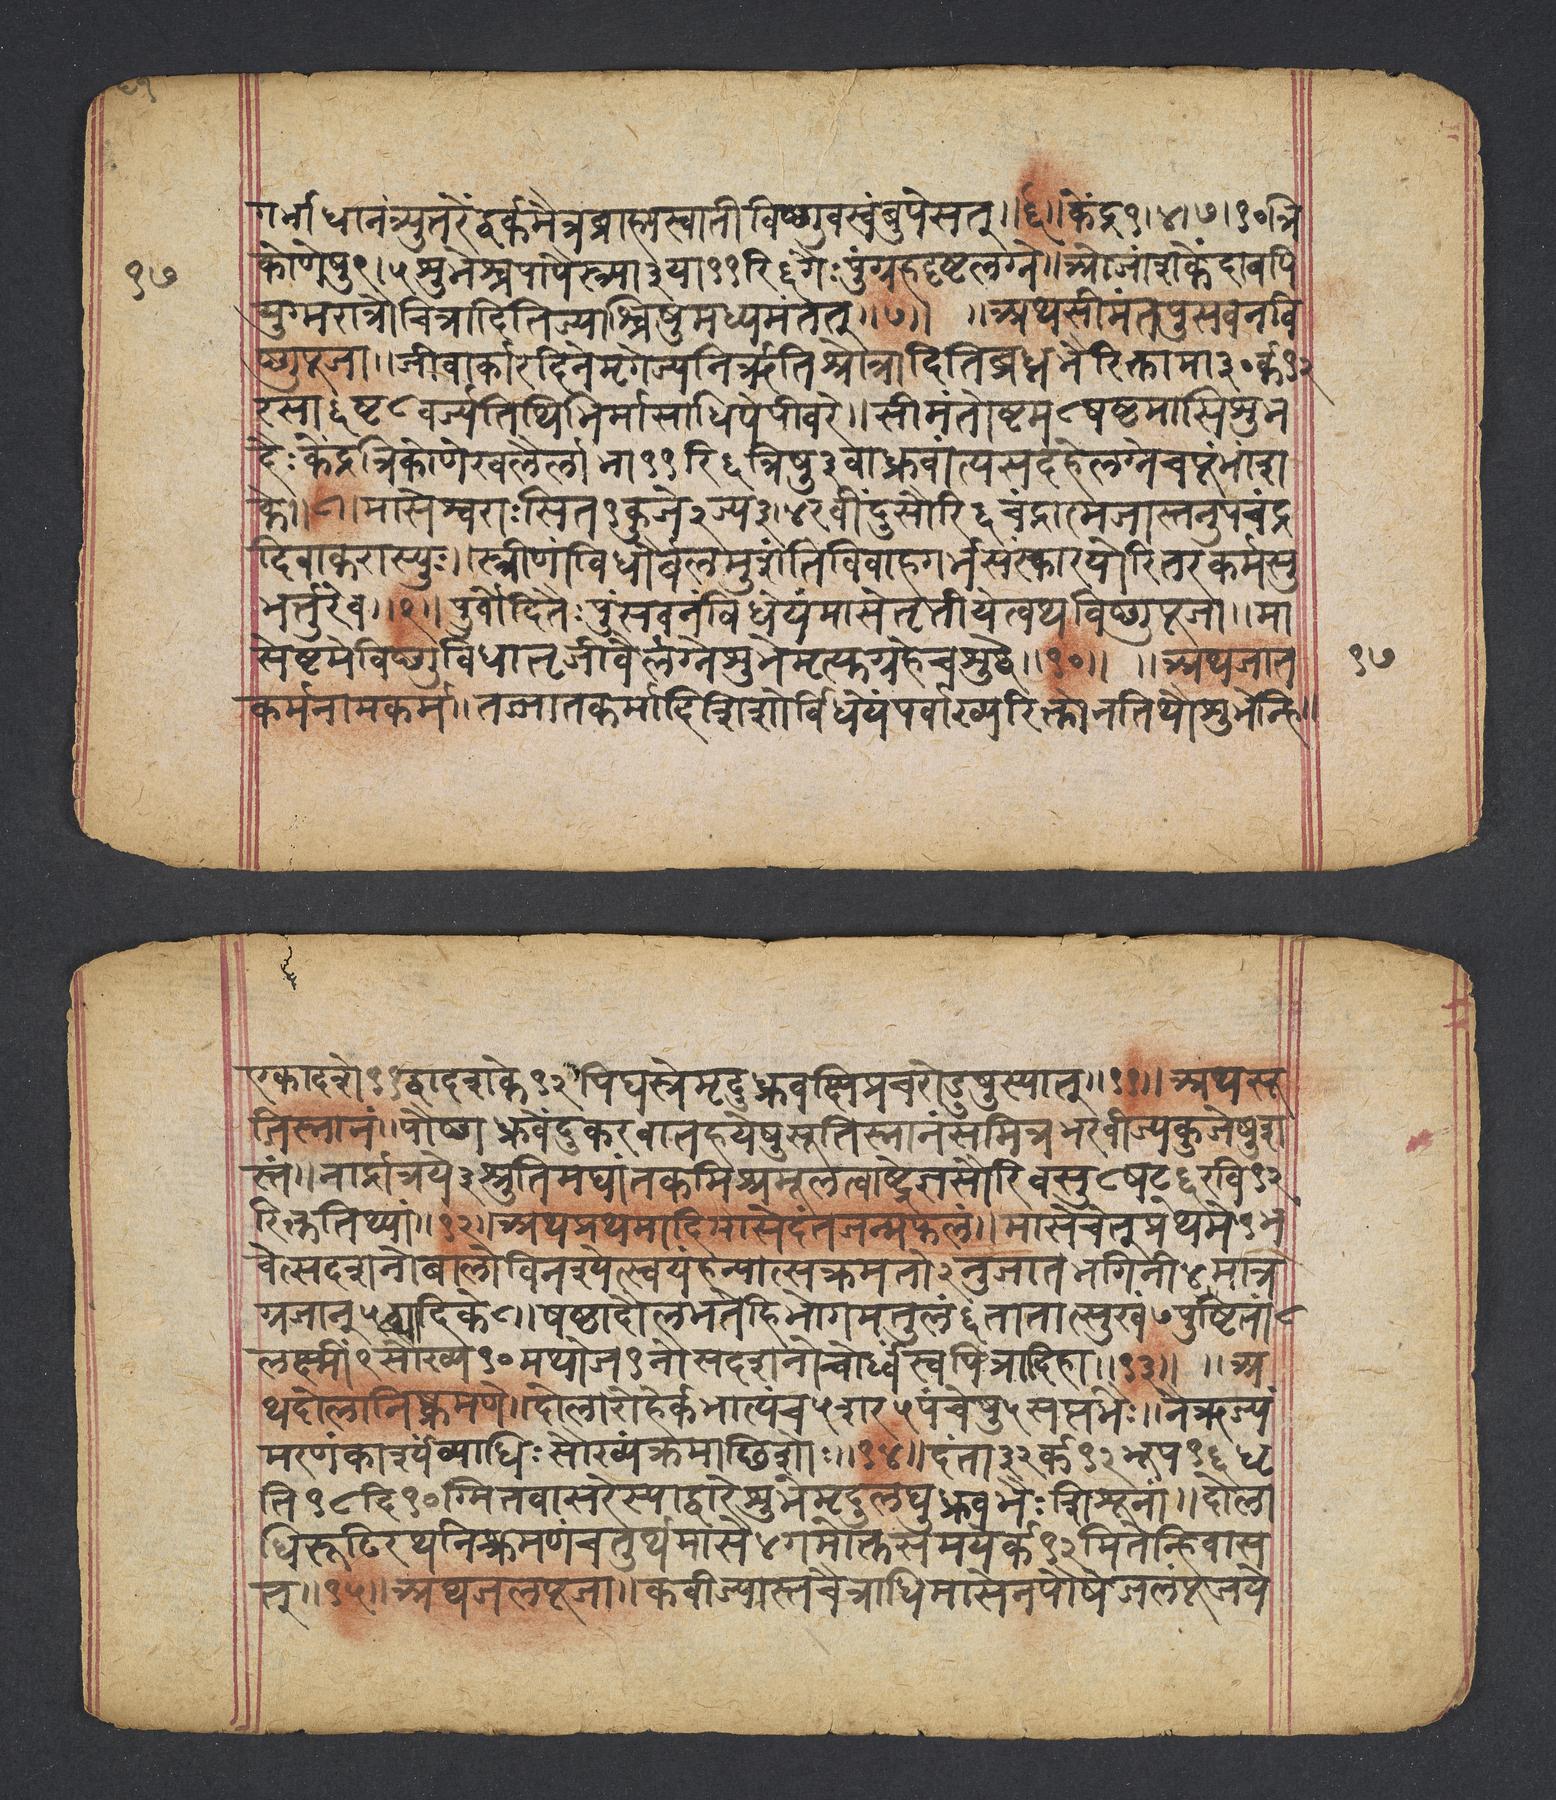 १७
गर्भाधानंत्र्युत्तरेंद्वर्कमैत्रब्राह्मस्वातीविष्णुवस्वंबुपेसत्॥६॥केंद्र१।४।७।१०त्रि
कोणेषु९।५शुभैश्चपापैस्त्र्या३या११रि६गैःपुंग्रहदृष्टलग्ने॥ओजांशकेंदावपि
युग्मरात्रौचित्रादितिज्याश्विषुमध्यमंतत्॥७॥ ॥अथसीमंतपुंसवनवि
ष्णुपूजा॥जीवार्कारदिनेमृगेज्यनिर्ऋतिश्रोत्रादितिब्रध्नभैरिक्तामा३०र्क१२
रसा६ष्ट८वर्ज्यतिथिभिर्मासाधिपेपीवरे॥सीमंतोष्टम८षष्ठमासिशुभ
दैःकेंद्रत्रिकोणेखलैर्लाभा११रि६त्रिषु३वाध्रुवांत्यसदहेलग्नेचपूंभांश
के॥८॥मासेश्वराःसित१कुजे२ज्य३।४रवींदुसौरि६चंद्रात्मजास्तनुपचंद्र
दिवाकरास्युः॥स्त्रीणांविधोर्बलमुशंतिविवाहगर्भसंस्कारयोरितरकर्मसु
भर्तुरेव॥९॥पुर्वोदितैःपुंसवनंविधेयंमासेतृतीयेत्वथविष्णुपूजा॥मा
सेष्टमेविष्णुविधातृजीवैर्लग्नेशुभेमृत्युगृहेचशुद्धे॥१०॥ ॥अथजात
१७
कर्मनामकर्म॥तज्जातकर्मादिशिशोर्विधेयंपर्वाख्यरिक्तोनतिथौशुभेन्हि॥
एकादशे११द्वादशके१२पिघस्त्रेमृदुध्रुवक्षिप्रचरोडुषुस्यात्॥११॥अथसू
तिस्नानं॥पौष्णध्रुवेंदुकरवातहयेषुसूतिस्नानंसमित्रभरवीज्यकुजेषुश
स्तं॥नार्द्रात्रये३श्रुतिमघांतकमिश्रमूलत्वाष्ट्रेज्ञसौरिवसु८षट्६रवि१२
रिक्ततिथ्यां॥१२॥अथप्रथमादिमासेदंतजन्मफलं॥मासेचेत्प्रथमे१भ
वेत्सदशनोबालोविनश्येत्स्वयंहन्यात्सक्रमतो२नुजातभगिनी४मात्र
ग्रजान्५द्व्यादिके८॥षष्ठादौलभतेहिभोगमतुलं६तातात्सुखं७पुष्टितां८
लक्ष्मीं९सौख्य१०मथोज१नोसदशनोन्वोर्ध्वंस्वपित्रादिहा॥१३॥ ॥अ
थदोलानिष्क्रमणे॥दोलारोहेर्कभात्पंच५शर५पंचेषु५सप्तभैः॥नैरुज्यं
मरणंकार्श्यंव्याधिःसौख्यंक्रमाछिशोः॥१४॥दंता३२र्क१२भूप१६धृ
ति१८दि१०ग्मितवासरेस्याद्वारेशुभेमृदुलघुध्रुवभैःशिशूनां॥दोला
धिरूढिरथनिष्क्रमणंचतुर्थमासे४गमोक्तसमयेर्क१२मितेन्हिवास
त्॥१५॥अथजलपूजा॥कवीज्यास्तचैत्राधिमासेनपौषेजलंपूजये